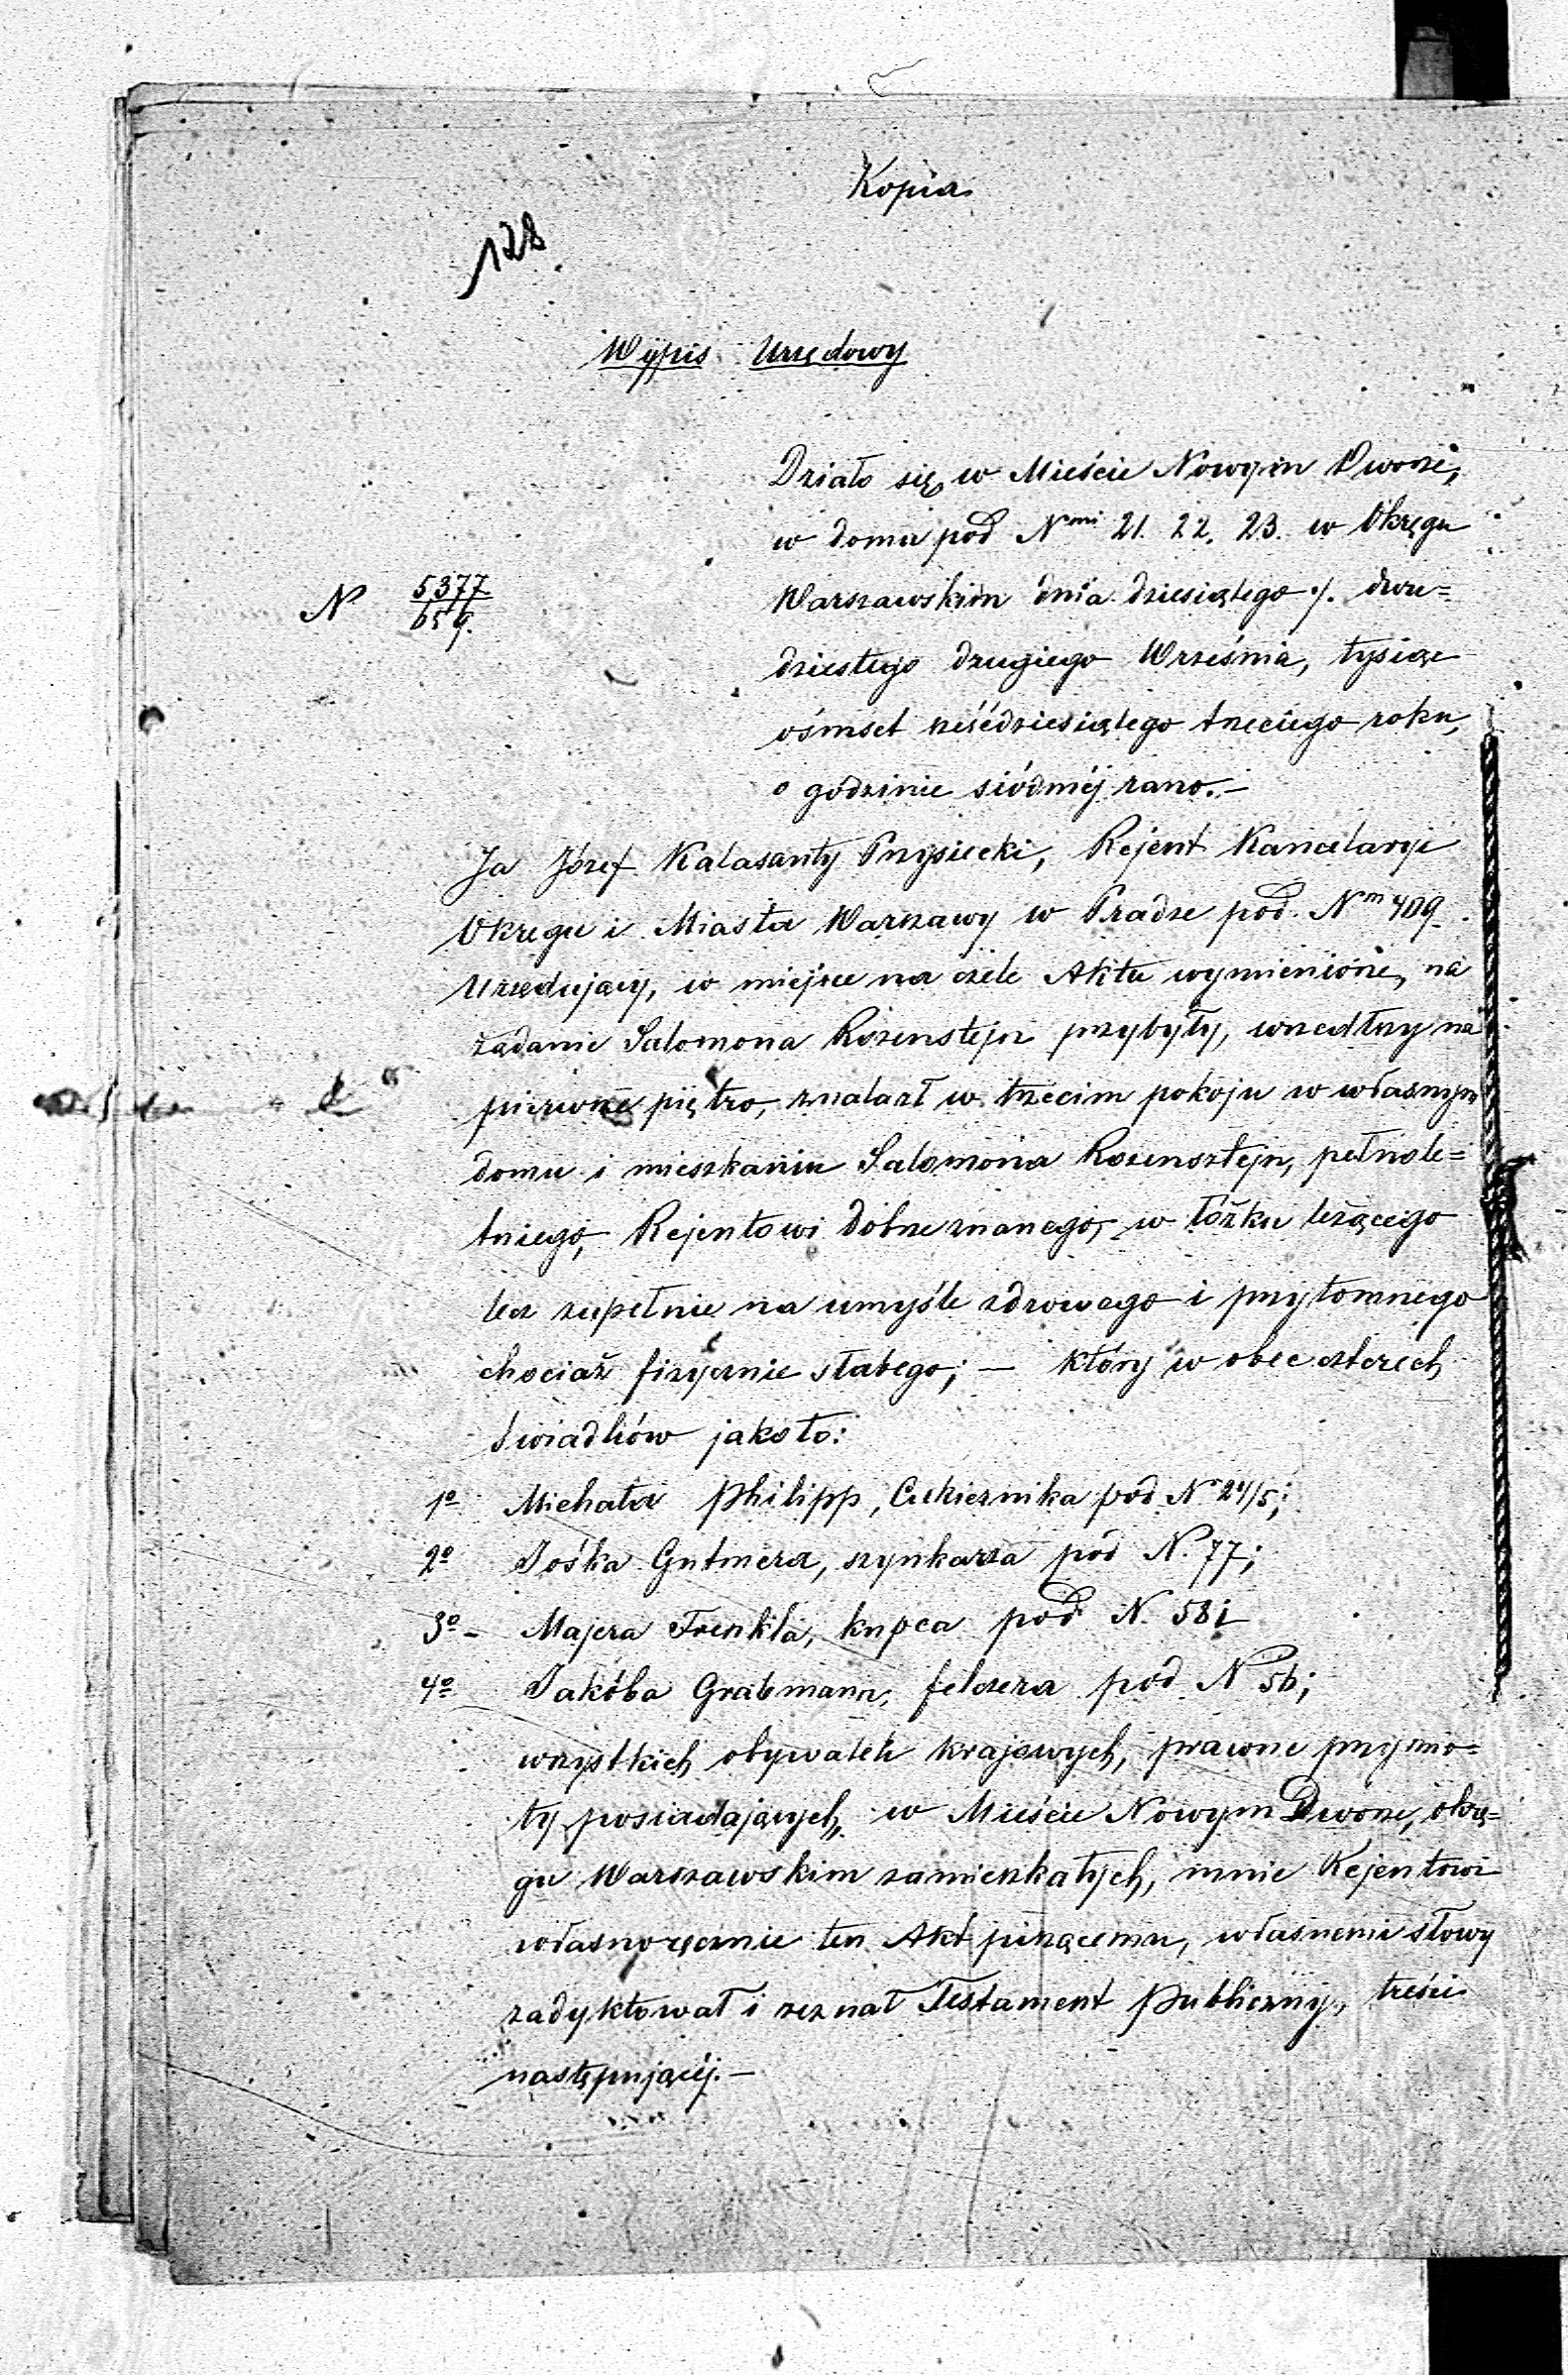 Kopia
128
Wypis Urzędowy
Działo się w Mieście Nowym Dworze,
w domu pod Nmi 21. 22. 23. w Okręgu
N 5377/659.
Warszawskim dnia dziesiątego /. dwu=
dziestego drugiego Września, tysiąc
ośmset sześćdziesiątego trzeciego roku,
o godzinie siódméj rano. —
Ja Józef Kalasanty Przysiecki, Rejent Kancelaryi
Okręgu i Miasta Warszawy w Pradze pod Nm 409
Urzędujący, w miejsce na czele Aktu wymienione, na
żądanie Salomona Rozensztejn przybyły, wszedłszy na
pierwsze piętro, znalazł w trzecim pokoju w własnym
domu i mieszkaniu Salomona Rozensztejn, pełnole=
tniego, Rejentowi dobrze znanego, w łóżku leżącego
lecz zupełnie na umyśle zdrowego i przytomnego
chociaż fizycznie słabego; — który w obec czterech
świadków jakoto:
1o Michała Philipp, Cukiernika pod N 24/5;
2o Jośka Gutnera, szynkarza pod N. 77;
3o - Majera Frenkla, kupca pod N. 58 i
4o Jakóba Grabmann, felczera pod N 56;
wszystkich obywateli krajowych, prawne przymio=
ty posiadających, w Mieście Nowym Dworze, okrę=
gu Warszawskim zamieszkałych, mnie Rejentowi
własnoręcznie ten Akt piszącemu, własnemi słowy
zadyktował i zeznał Testament Publiczny, treści
następującéj. —